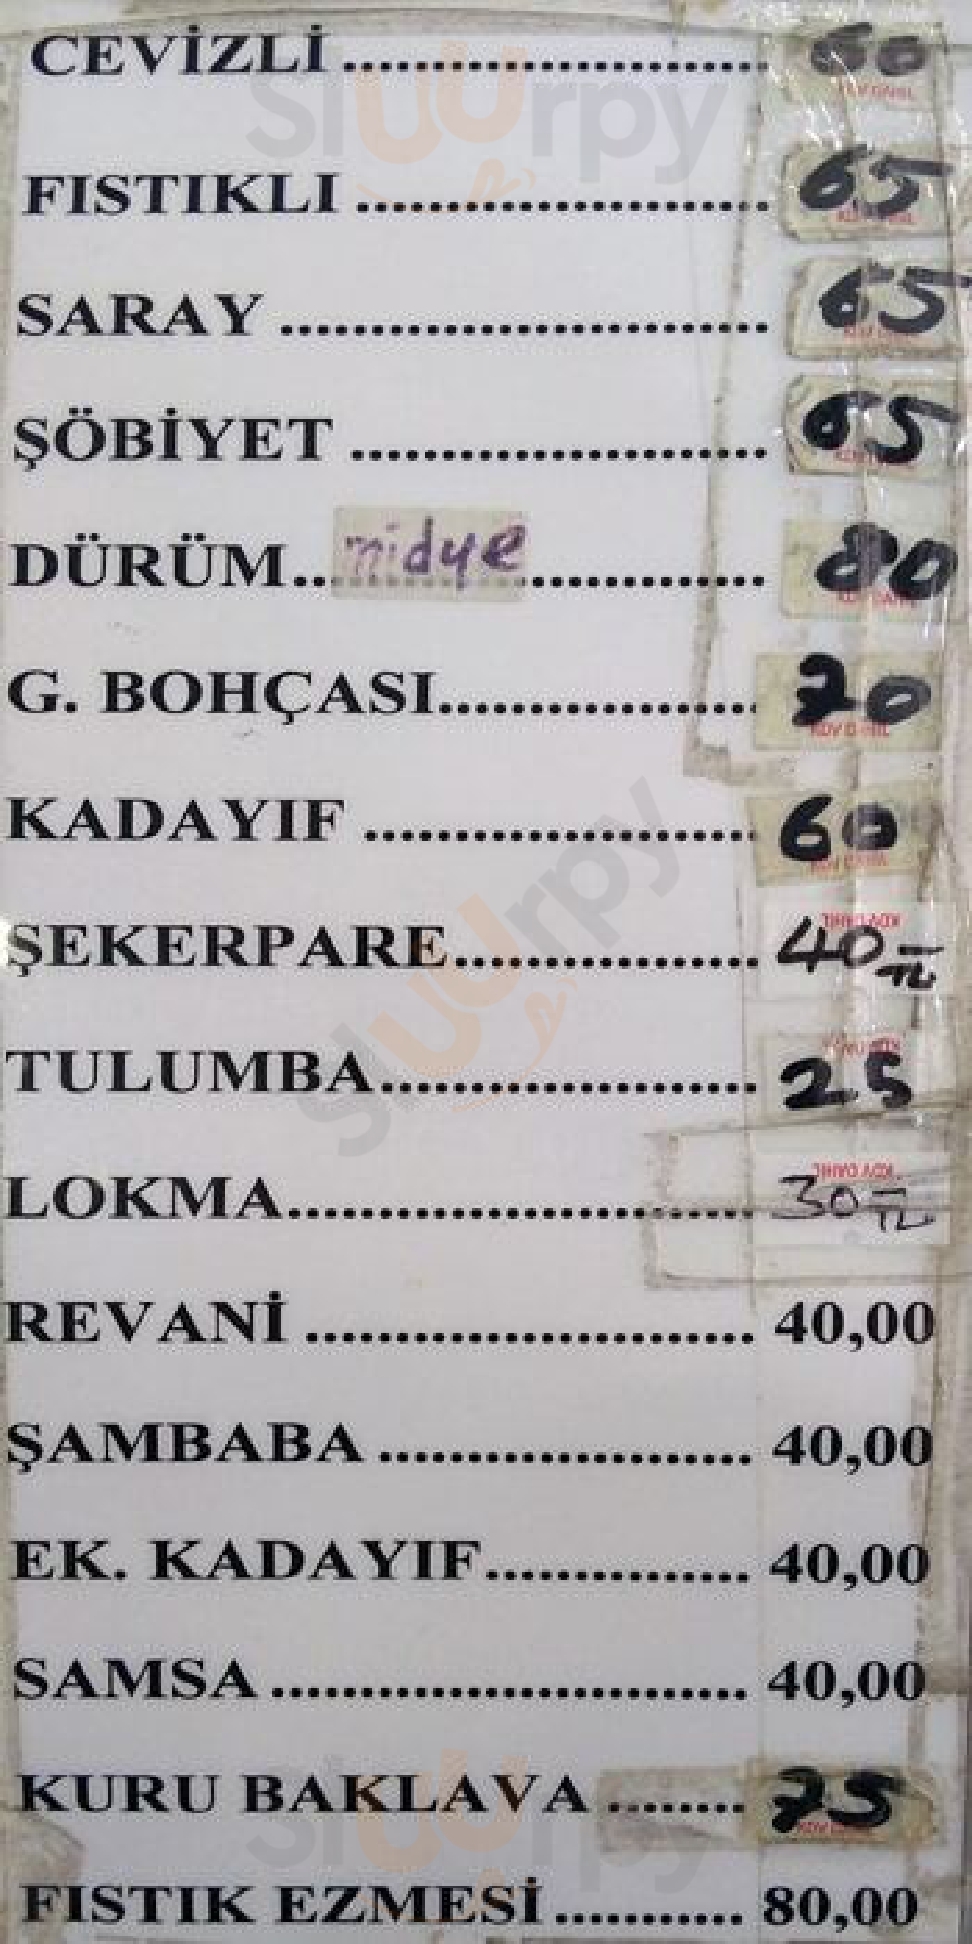 CEVİZLİ .................................. 60
FISTIKLI .................................. 65
SARAY ........................................ 65
ŞÖBİYET .................................. 65
DÜRÜM... midye ................... 80
G. BOHÇASI.......................... 70
KADAYIF ................................ 60
ŞEKERPARE......................... 40 TL
TULUMBA............................... 25
LOKMA...................................... 30 TL
REVANİ ..................................... 40,00
ŞAMBABA ............................... 40,00
EK. KADAYIF...................... 40,00
SAMSA ....................................... 40,00
KURU BAKLAVA ............ 75
FISTIK EZMESİ................ 80,00